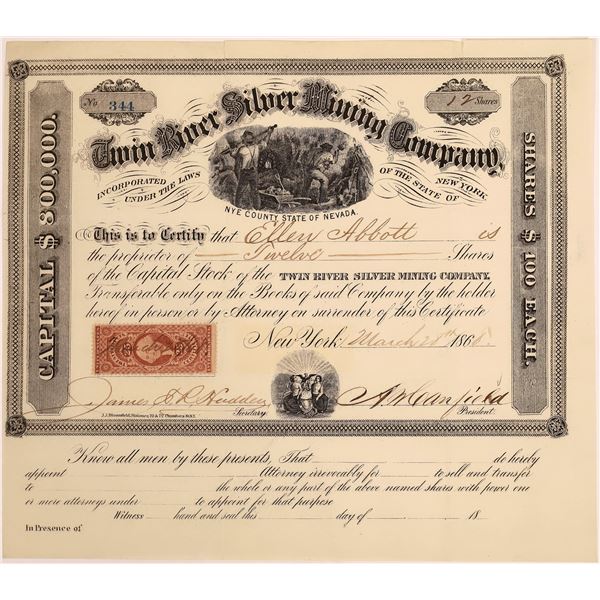 No 344
12 Shares
Twin River Silver Mining Company,
INCORPORATED UNDER THE LAWS
OF THE STATE OF NEW YORK
NYE COUNTY STATE OF NEVADA.
CAPITAL $800,000.
SHARES $100 EACH.
This is to Certify that Ellen Abbott is
the proprietor of Twelve Shares
of the Capital Stock of the TWIN RIVER SILVER MINING COMPANY.
Transferable only on the Books of said Company by the holder
hereof in person or by Attorney on surrender of this Certificate
New York, March 28th 1868
Secretary.
President.
Know all men by these presents, That do hereby
appoint Attorney irrevocably for to sell and transfer
to the whole or any part of the above named shares with power one
or more attorneys under to appoint for that purpose
Witness hand and seal this day of 18
In Presence of